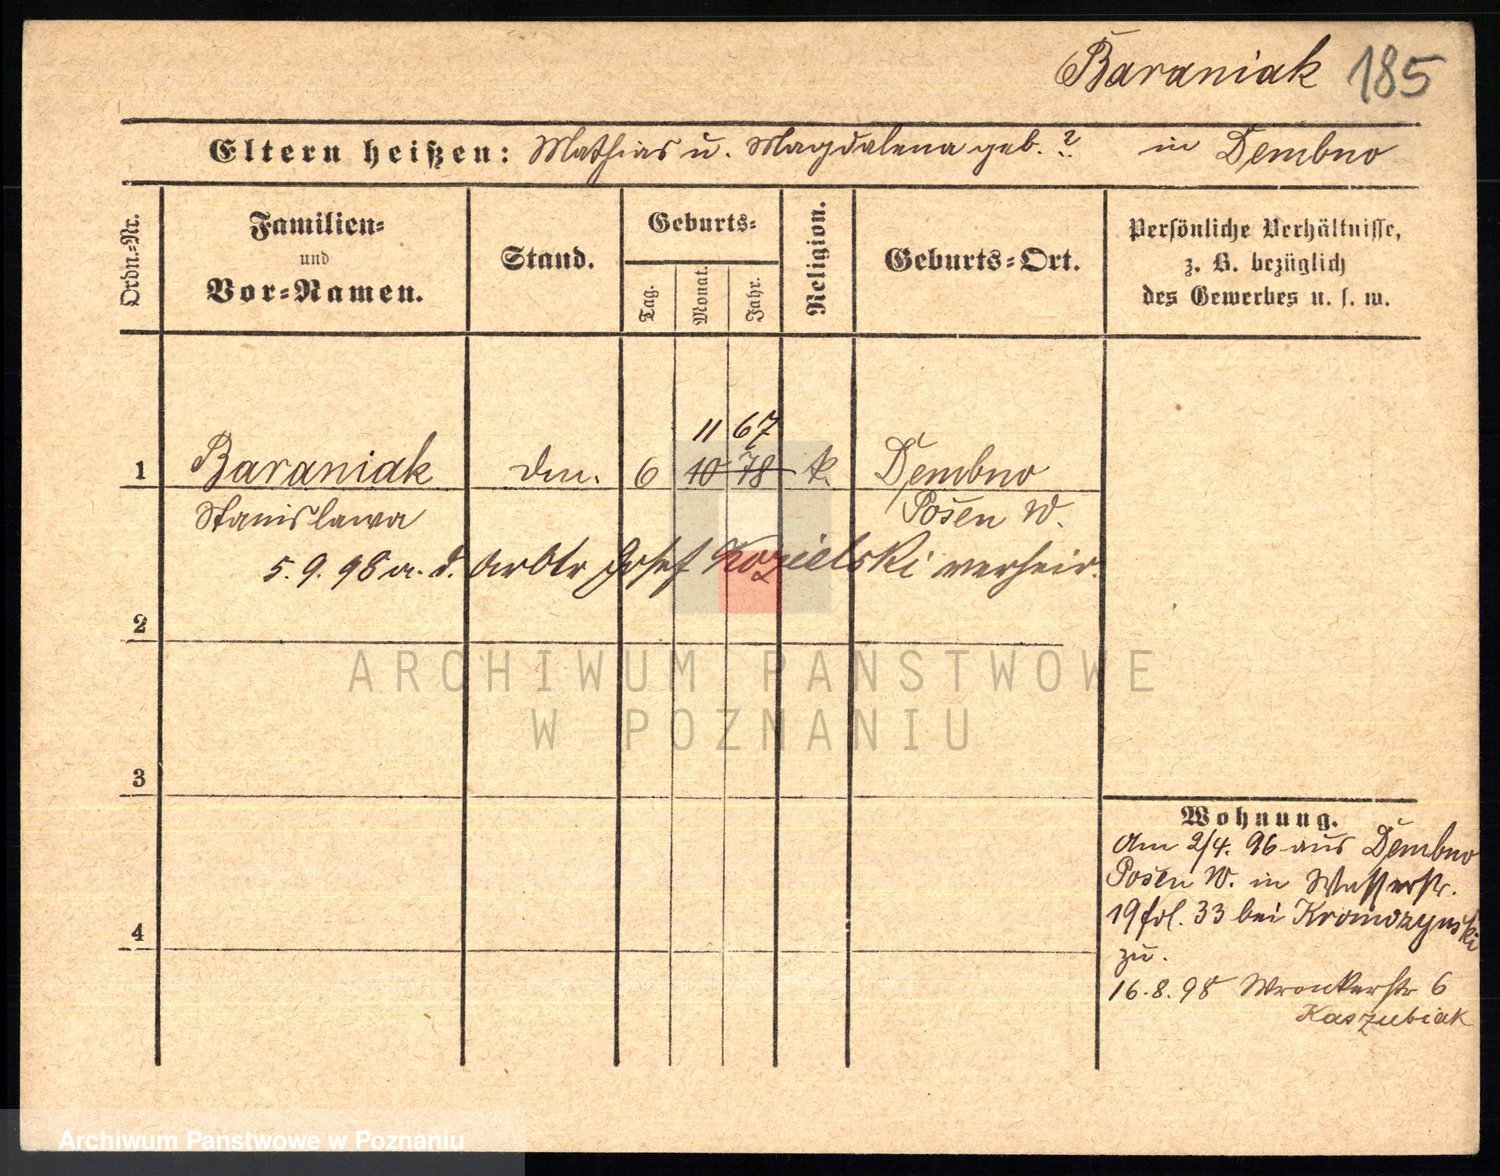 Baraniak 185
Eltern heißen: Mathias u. Magdalena geb. ? in Dembno
Ordn.-Nr.
Familien-
und
Vor-Namen.
Stand.
Geburts-
Tag.
Monat.
Jahr.
Religion.
Geburts-Ort.
Persönliche Verhältnisse,
z. B. bezüglich
des Gewerbes u. s. w.
11 67
1 Baraniak 6 10 78 k. Dembno
Stanislawa Posen W.
5.9.98 a. d. Arbtr Josef Kozielski verheir.
2
3
4
Wohnung.
Am 2/4. 96 aus Dembno
Posen W. in Wasserstr.
19 fol. 33 bei
zu.
16.8.98 Wronkerstr 6
Kaszubiak
ARCHIWUM PAŃSTWOWE
W POZNANIU
Archiwum Państwowe w Poznaniu